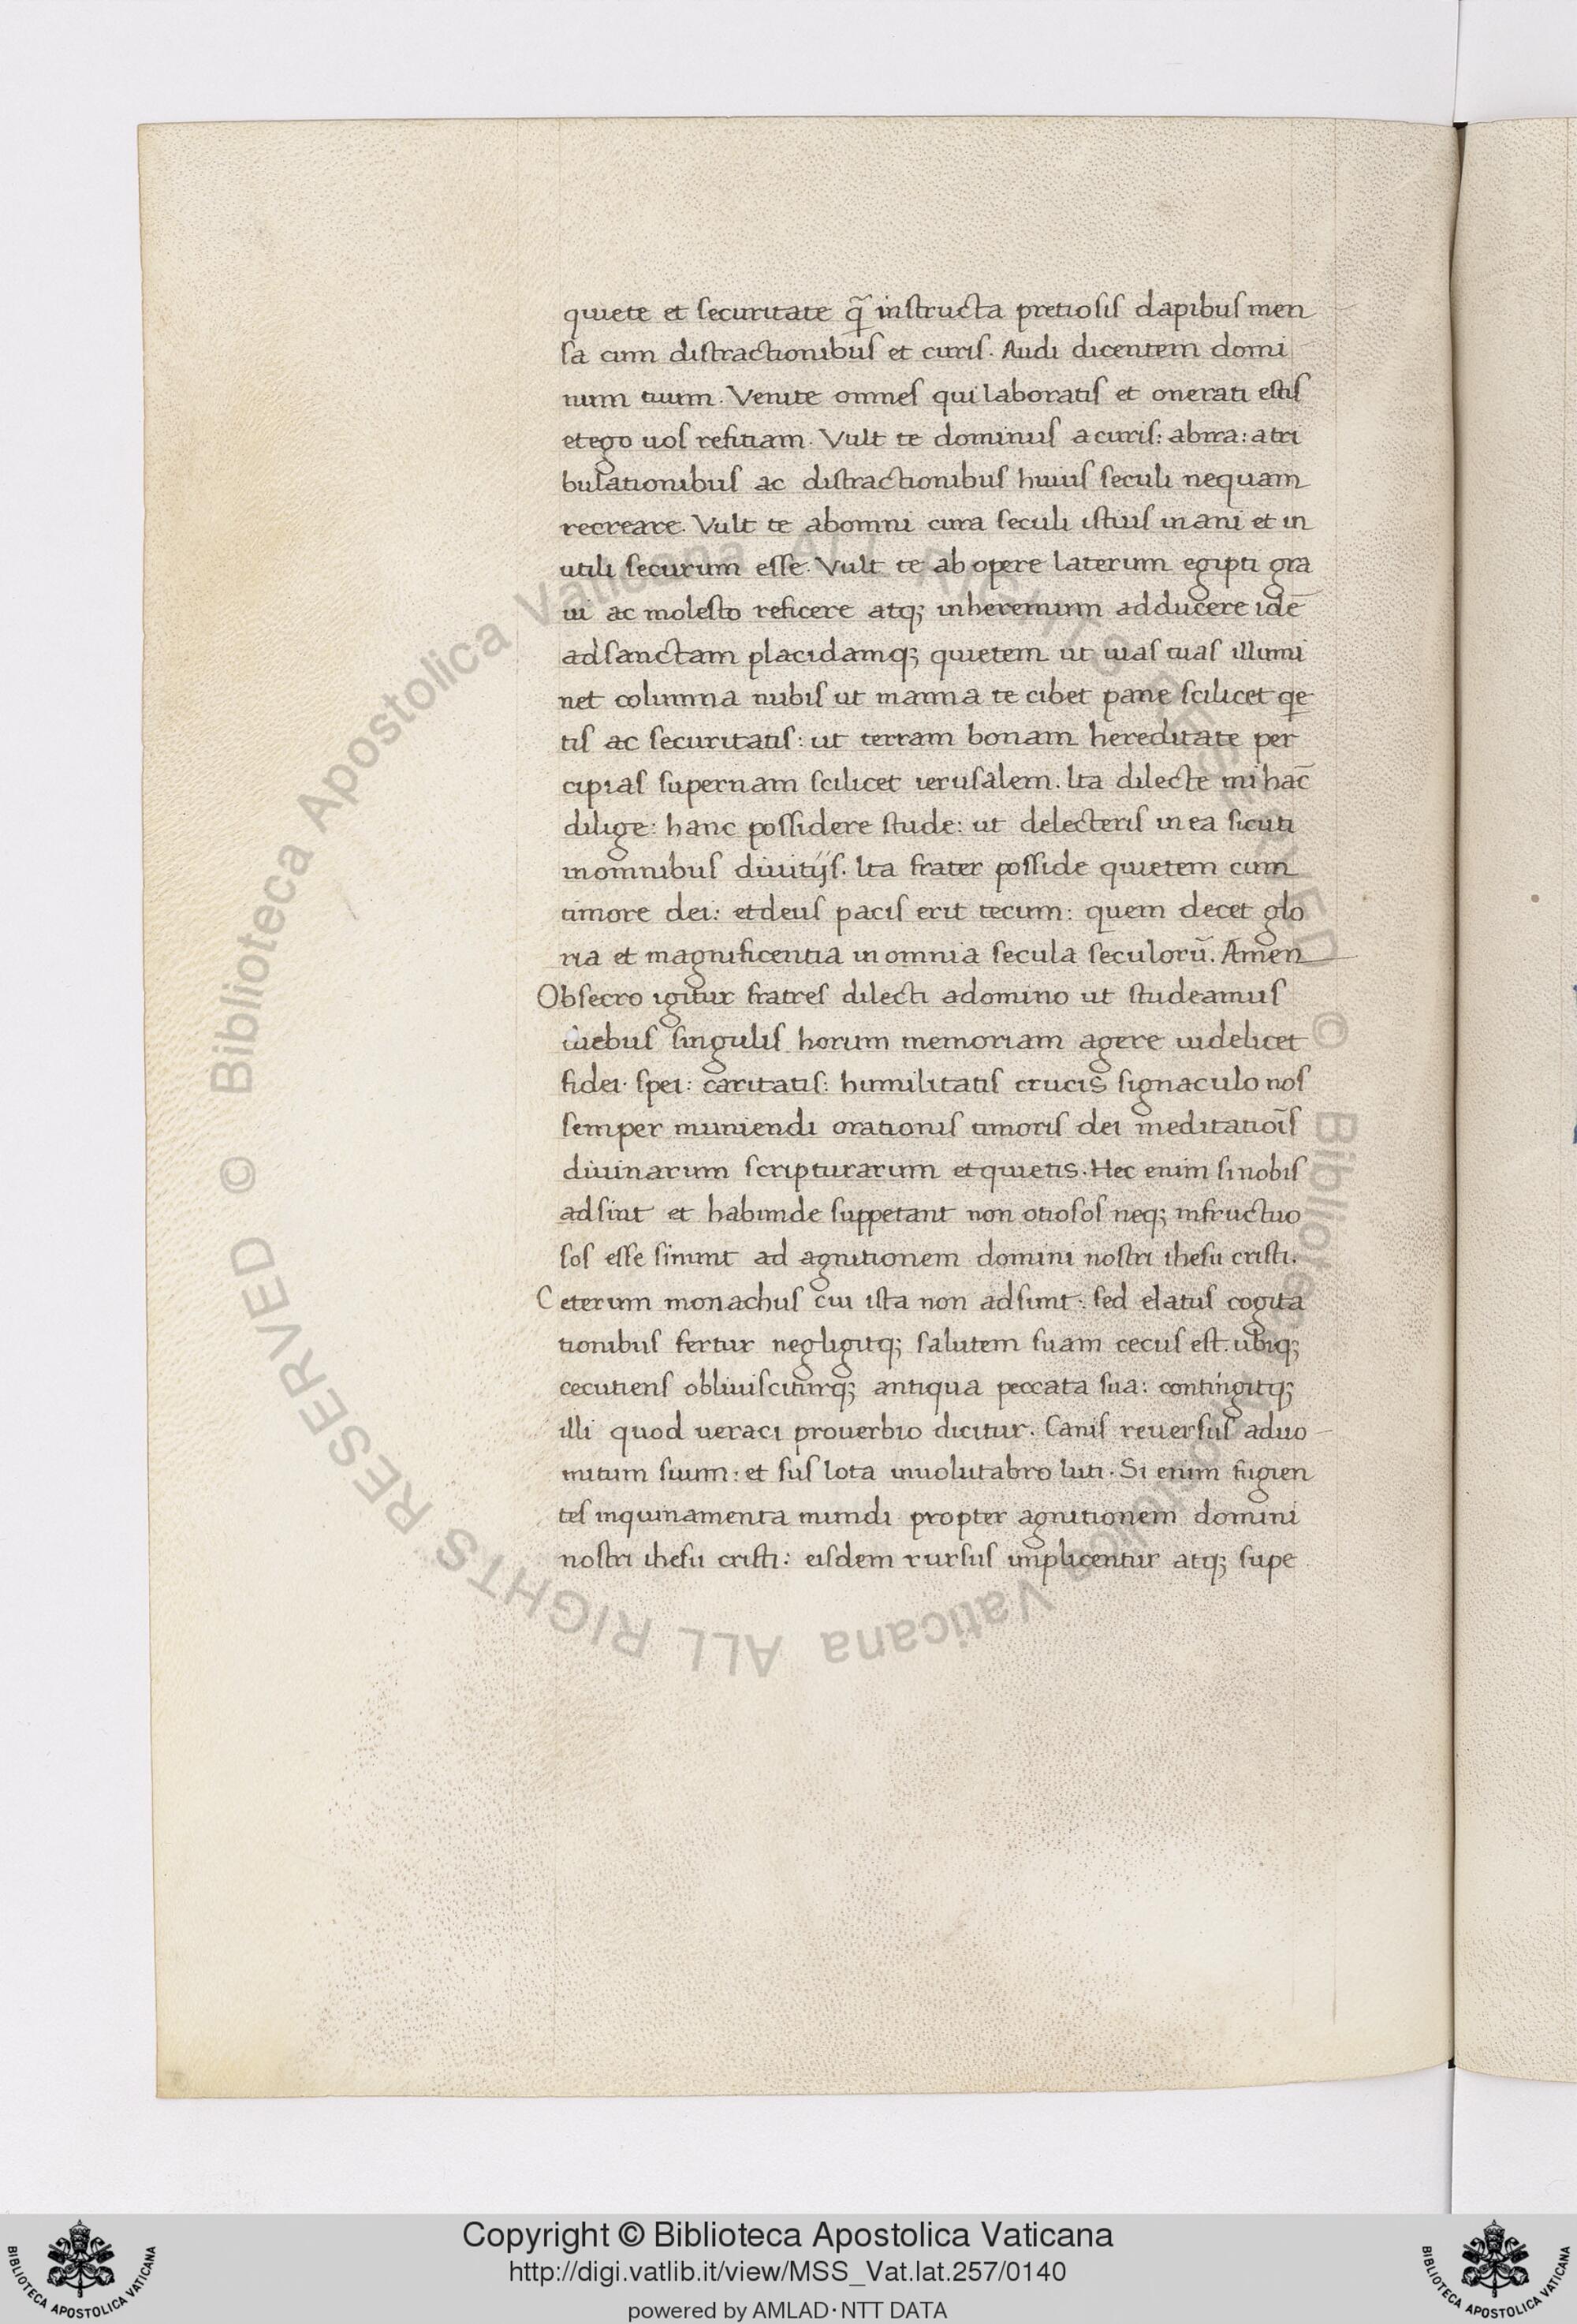 quiete et securitate q̃ instructa pretiosis dapibus men
sa cum distractionibus et curis. Audi dicentem domi
num tuum. Venite omnes qui laboratis et onerati estis
et ego uos refitiam. Vult te dominus a curis: abira: a tri
bulationibus ac distractionibus huius seculi nequam
recreare. Vult te ab omni cura seculi istius inani et in
utili securum esse. Vult te ab opere laterum egipti gra
ui ac molesto reficere atq; in heremum adducere idē
ad sanctam placidamq; quietem ut uias tuas illumi
net columna nubis ut manna te cibet pane scilicet qe
tis ac securitatis: ut terram bonam hereditate per
cipias supernam scilicet ierusalem. Ita dilecte mi hāc
dilige: hanc possidere stude: ut delecteris in ea sicuti
in omnibus diuitijs. Ita frater posside quietem cum
timore dei: et deus pacis erit tecum: quem decet glo
ria et magnificentia in omnia secula seculorū. Amen
Obsecro igitur fratres dilecti a domino ut studeamus
diebus singulis horum memoriam agere uidelicet
fidei. spei: caritatis: humilitatis crucis signaculo nos
semper muniendi orationis timoris dei meditatiōis
diuinarum scripturarum et quietis. Hec enim si nobis
adsint et habunde suppetant non otiosos neq; infructuo
sos esse sinunt ad agnitionem domini nostri ihesu cristi.
Ceterum monachus cui ista non adsunt: sed elatus cogita
tionibus fertur negligitq; salutem suam cecus est. ubiq;
cecutiens obliuisciturq; antiqua peccata sua: contingitq;
illi quod ueraci prouerbio dicitur. Canis reuersus ad uo
mitum suum: et sus lota in uolutabro luti. Si enim fugien
tes inquinamenta mundi propter agnitionem domini
nostri ihesu cristi: eisdem rursus implicentur atq; supe
© Biblioteca Apostolica Vaticana ALL RIGHTS RESERVED
© Biblioteca Apostolica Vaticana ALL RIGHTS RESERVED
Copyright © Biblioteca Apostolica Vaticana
http://digi.vatlib.it/view/MSS_Vat.lat.257/0140
powered by AMLAD·NTT DATA
BIBLIOTECA APOSTOLICA VATICANA
BIBLIOTECA APOSTOLICA VATICANA